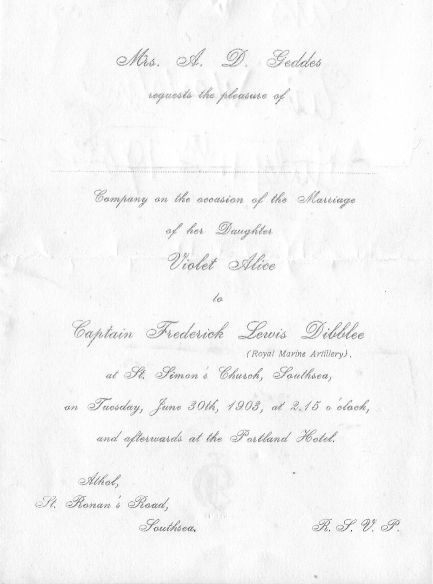 Mrs. A. D. Geddes
requests the pleasure of
Company on the occasion of the Marriage
of her Daughter
Violet Alice
to
Captain Frederick Lewis Dibblee
(Royal Marine Artillery).
at St. Simon's Church, Southsea,
on Tuesday, June 30th, 1903, at 2.15 o'clock,
and afterwards at the Portland Hotel.
Athol,
St. Ronan's Road,
Southsea.
R. S. V. P.